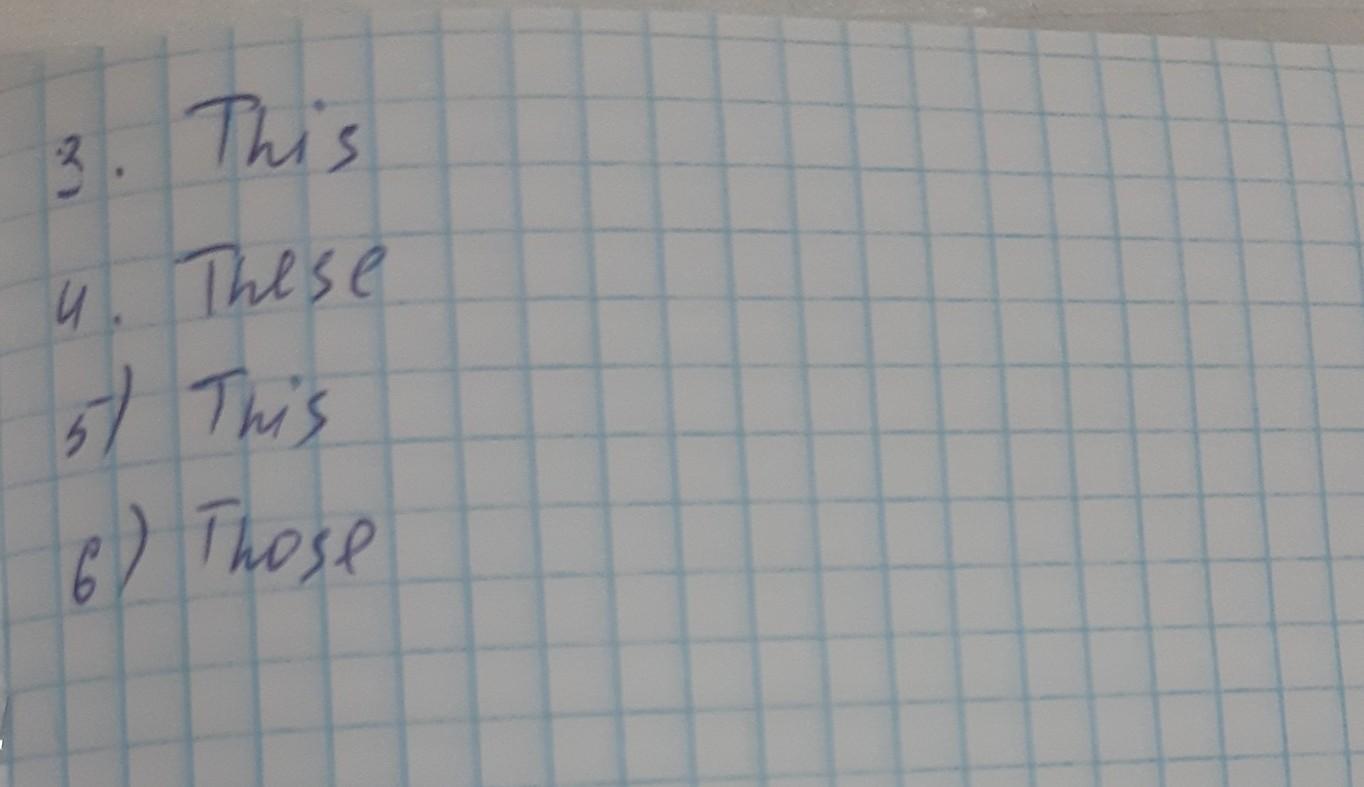 3. This
4. These
5) This
6) Those